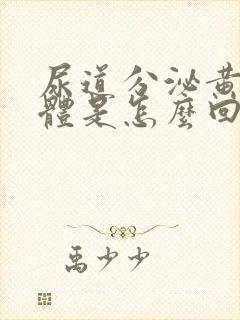 尿道分泌黃
體是怎麼回
禹少少